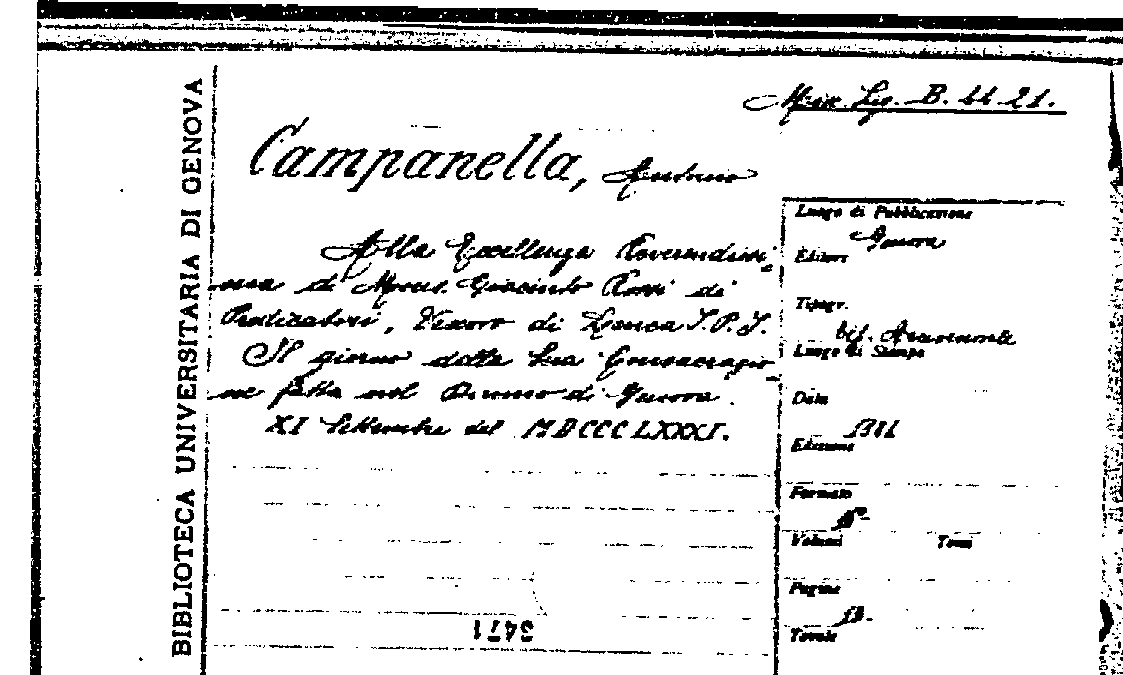 BIBLIOTECA UNIVERSITARIA DI GENOVA
Misc. Lig. B. 44. 21.
Campanella, Antonio
Alla Eccellenza Reverendissi-
ma di Mons. Giacinto Rossi di
Predicatori, Vescovo di Luni
Il giorno della Sua Consacrazio-
ne fatta nel Duomo di Genova.
XI Settembre del MDCCCLXXXI.
3471
Luogo di Pubblicazione
Genova
Editori
Tipogr.
tip. Arcivescovile
Luogo di Stampa
Data
1881
Edizione
Formato
Volumi Tomi
Pagine
Tavole